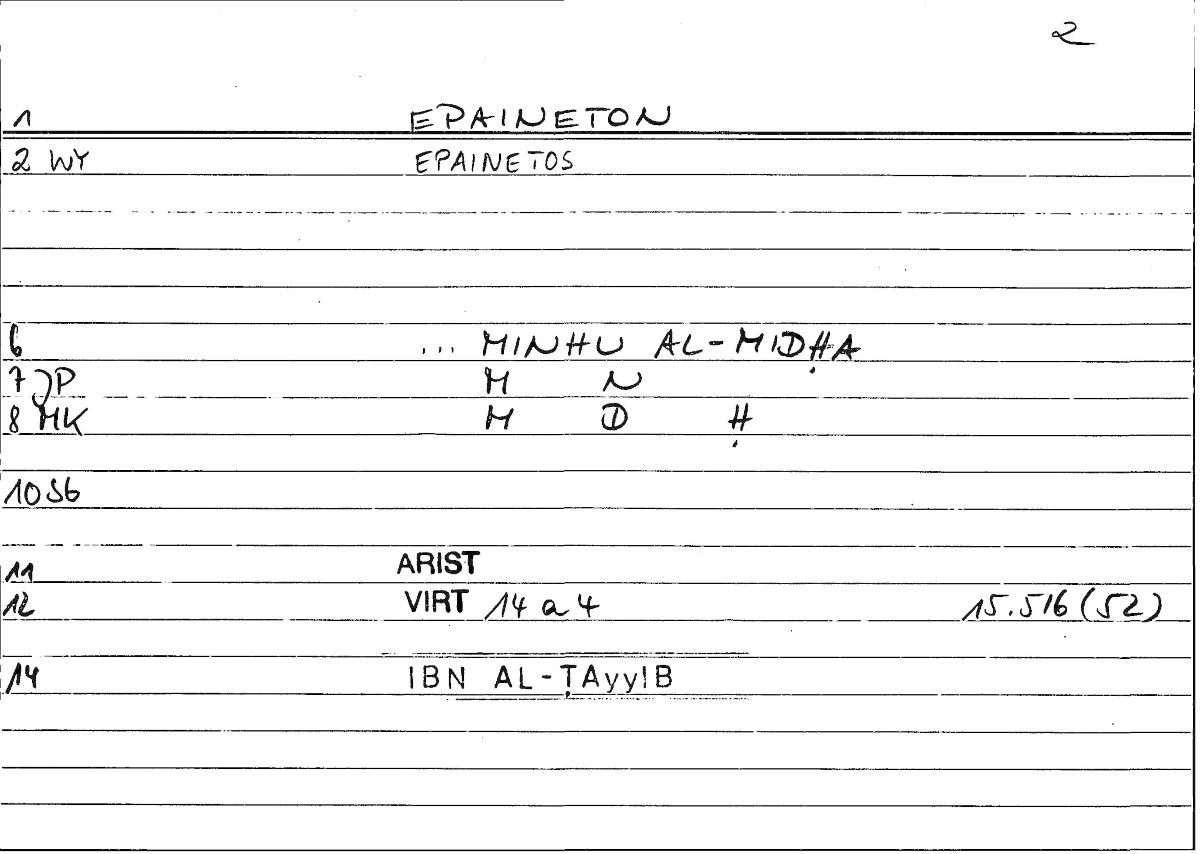 2
1 EPAINETON
2 WY EPAINETOS
6 ... MINHU AL-MIDḤA
7 JP M N
8 MK M D Ḥ
10 S6
11 ARIST
12 VIRT 14 a 4 15.516 (52)
14 IBN AL-ṬAyyIB